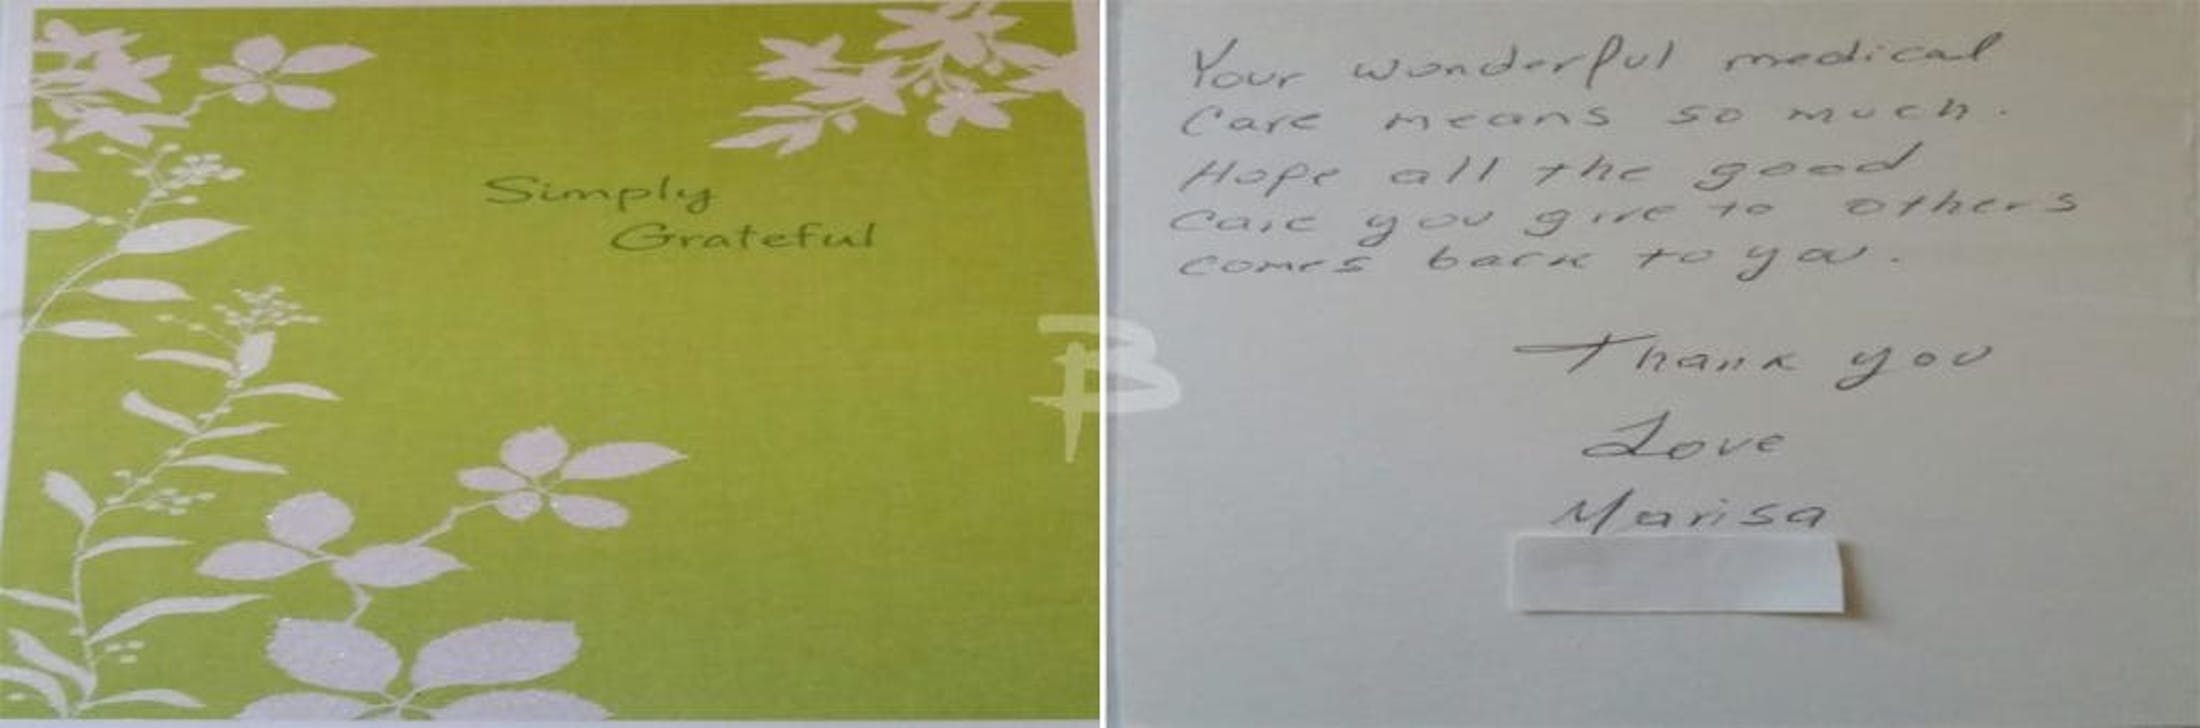 Simply
Grateful
Your wonderful medical
Care means so much.
Hope all the good
care you give to others
comes back to you.
Thank you
Love
Marisa